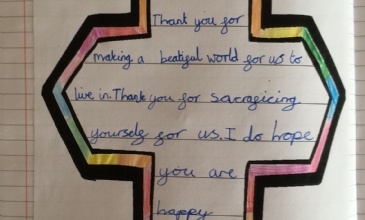 Thank you for
making a beatiful world for us to
live in. Thank you for sacragicing
yourselg for us. I do hope
you are
happy